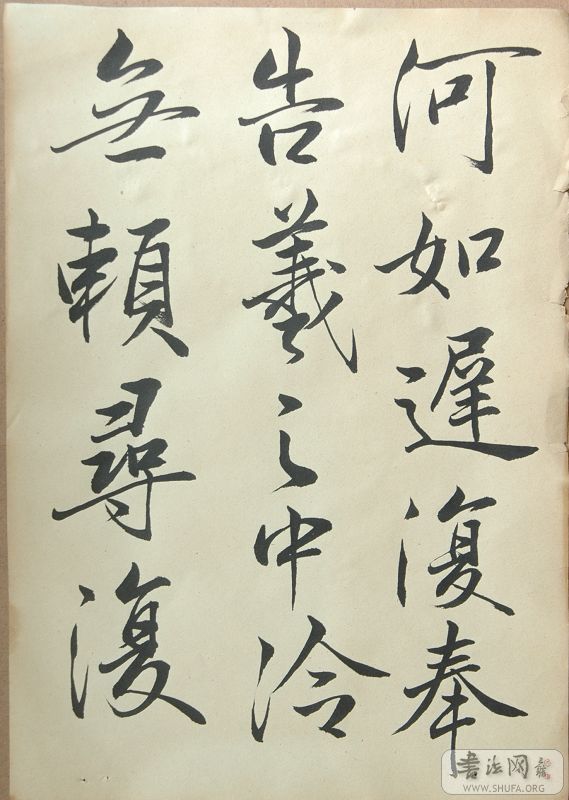 何如遲復奉
告羲之中冷
無賴尋復
書法网
WWW.SHUFA.ORG